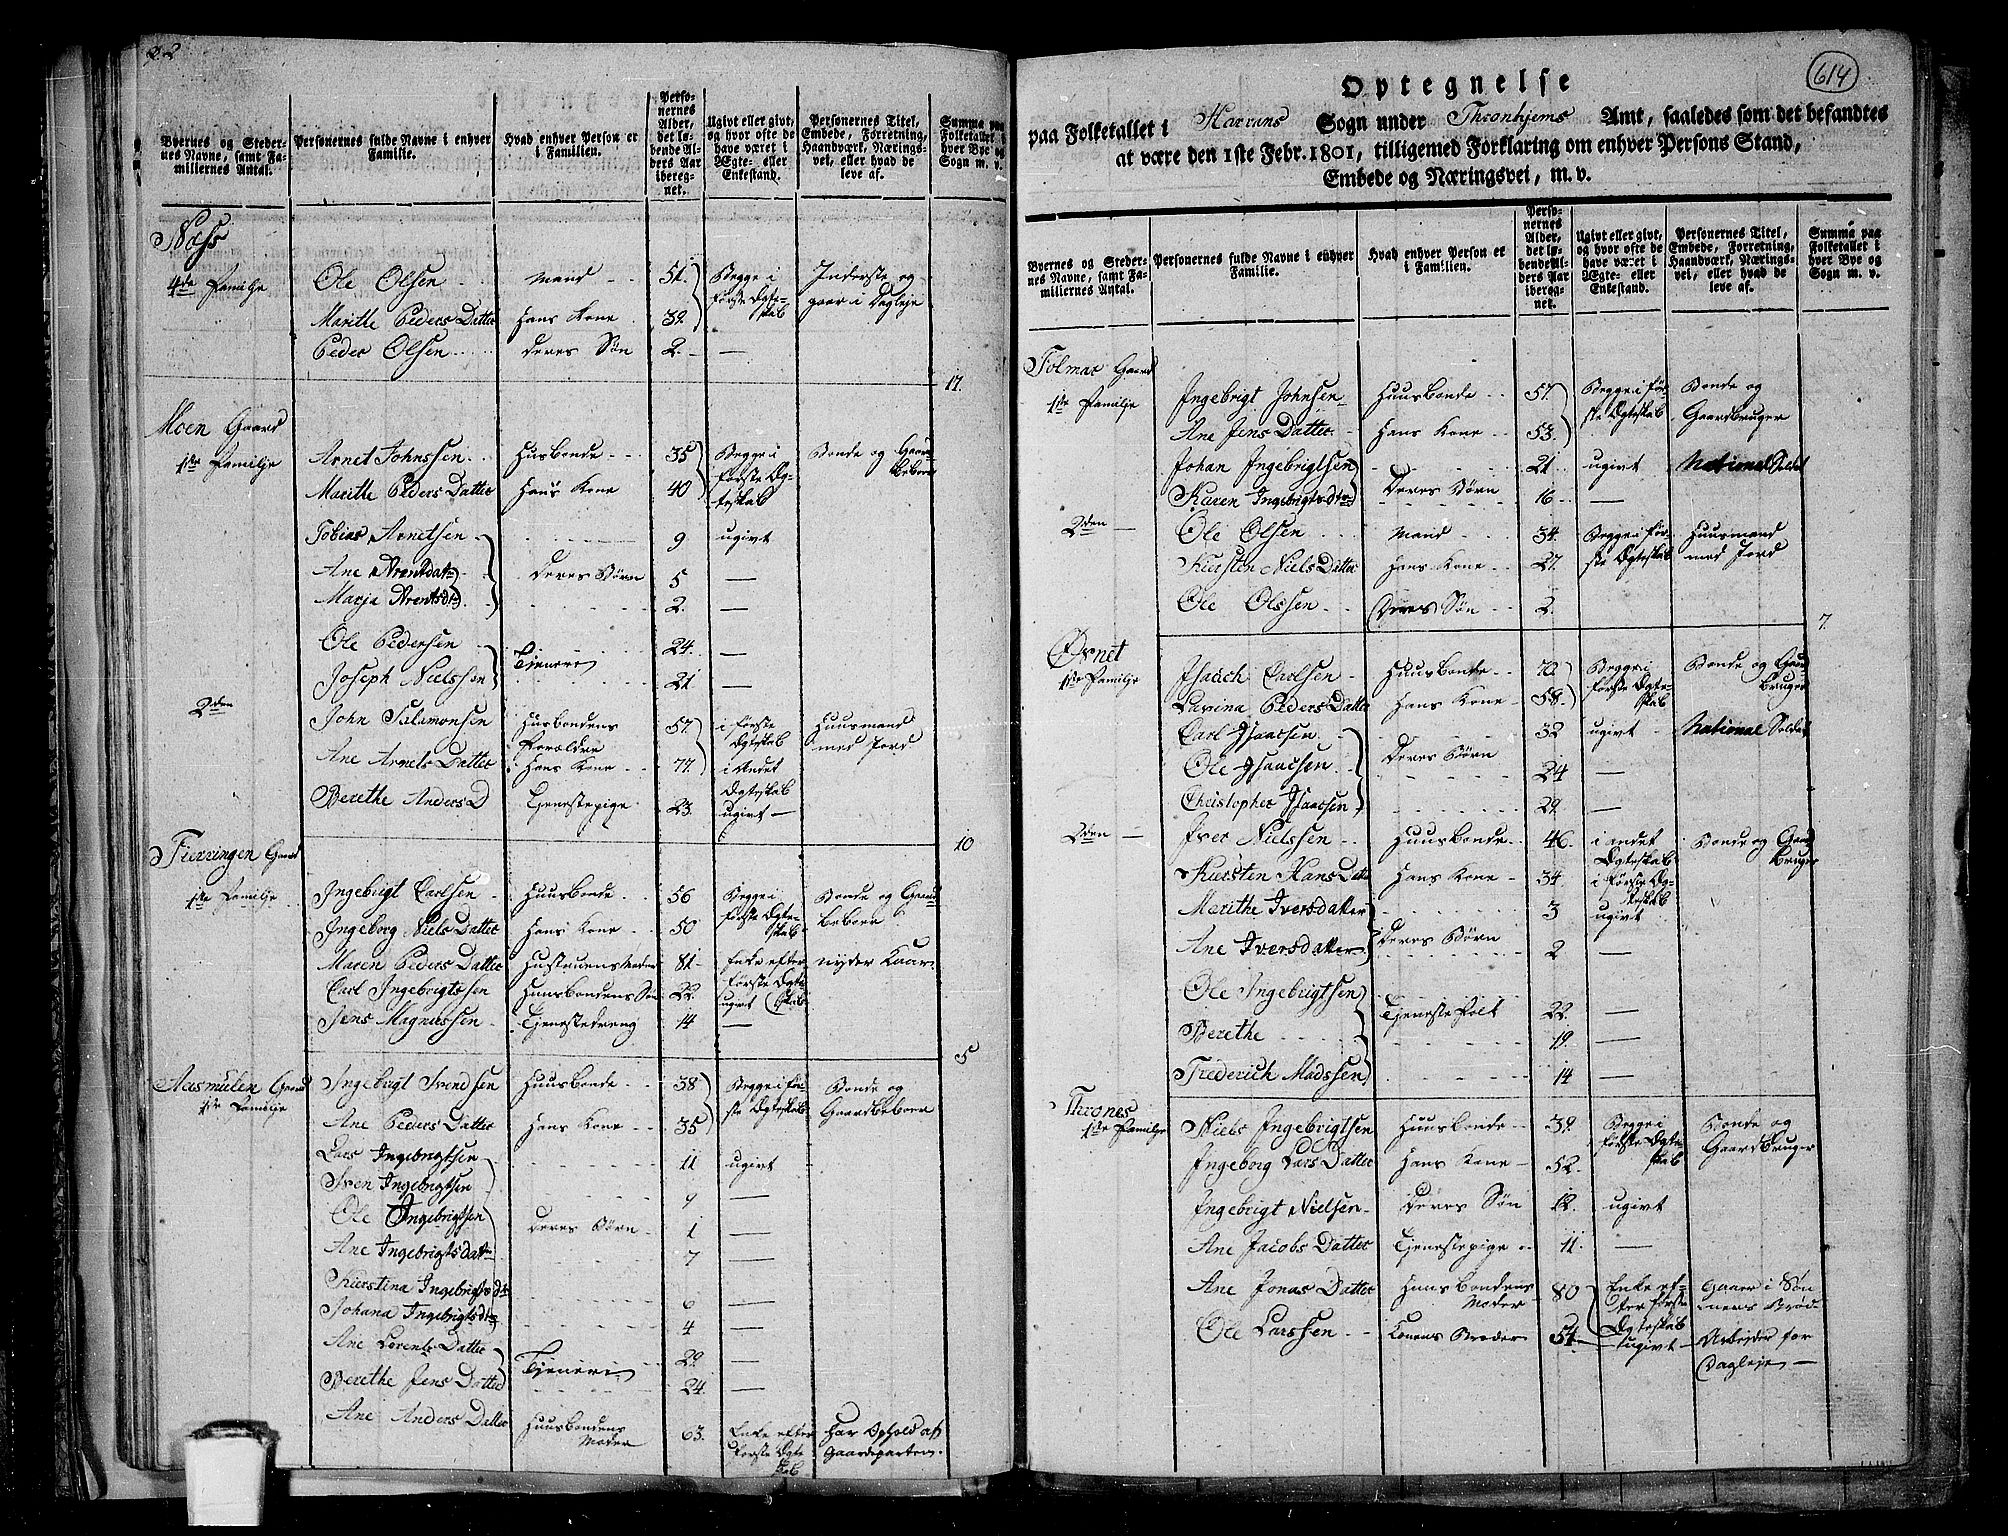 Byernes og Stedernes Navne, samt Familiernes Antal.
Personernes fulde Navne i enhver Familie.
Hvad enhver Person er i Familien.
Personernes Alder, det løbende Alders Aar iberegnet.
Ugivt eller givt, og hvor ofte de have været i Ægte- eller Enkestand.
Personernes Titel, Embede, Forretning, Haandværk, Næringsvei, eller hvad de leve af.
Summa paa Folketallet i hver Bye og Sogn m. v.
Næss
4de Familje Ole Olsen Mand 51. Begge i første Ægteskab Inderste og gaar i Dagleje
Marithe Peders Datter Hans Kone 39.
Peder Olsen Deres Søn 2. —
17.
Moen Gaard
1ste Familje Arnet Johnssen Husbonde 35 Begge i første Ægteskab Bonde og Gaard beboer
Marithe Peders Datter Hans Kone 40
Tobias Arnetsen 9 ugivt
Ane Arentdatr Deres Børn 5 —
Marja Arentsdr 2. —
Ole Pedersen Tjenere 24. —
Joseph Nielssen 21 —
2den John Salamonsen Husbondens Forældre 57. i første Ægteskab Huusmand med Jord
Ane Arnets Datter Hans Kone 77. i Andet Ægteskab
Berethe Anders D Tjenestepige 23. ugivt —
10
Fierringen Gaard
1ste Familje Ingebrigt Carlsen Huusbonde 56 Begge i første Ægteskab Bonde og Gaard beboer
Ingeborg Niels Datter Hans Kone 50
Maren Peders Datter Hustruens Moder 81. Enke efter første Ægteskab nyder Kaar
Carl Ingebrigtssen Huusbondens Søn 22. ugivt
Jens Magnussen Tjenestedreng 14 —
5
Aasmulen Gaard
1ste Familje Ingebrigt Svendsen Huusbonde 38 Begge i første Ægteskab Bonde og Gaardbeboer
Ane Peders Datter Hans Kone 35
Lars Ingebrigtsen 11 ugivt
Sven Ingebrigtsen 9 —
Ole Ingebrigtsen Deres Børn 1 —
Ane Ingebrigtsdatr 7 —
Kierstina Ingebrigtsdr 6 —
Johana Ingebrigtsdr 4 —
Ane Lorents Datter Tjeneri 29. —
Berethe Jens Datter 24. —
Ane Anders Datter Huusbondens Moder 63. Enke efter første Ægteskab Har Ophold af Gaardeparten.
614
Optegnelse
paa Folketallet i Harrans Sogn under Thronhjems Amt, saaledes som det befandtes
at være den 1ste Febr. 1801, tilligemed Forklaring om enhver Persons Stand,
Embede og Næringsvei, m. v.
Byernes og Stedernes Navne, samt Familiernes Antal.
Personernes fulde Navne i enhver Familie.
Hvad enhver Person er i Familien.
Personernes Alder, det løbende Alders Aar iberegnet.
Ugivt eller givt, og hvor ofte de have været i Ægte- eller Enkestand.
Personernes Titel, Embede, Forretning, Haandværk, Næringsvei, eller hvad de leve af.
Summa paa Folketallet i hver Bye og Sogn m. v.
Tolmar Gaard
1ste Familje Ingebrigt Johnsen Huusbonde 57. Begge i første Ægteskab Bonde og Gaardbruger
Ane Jens Datter Hans Kone 53.
Johan Ingebrigtsen 21 ugivt National Soldat
Karen Ingebrigtsdtr Deres Børn 16 —
2den — Ole Olsen Mand 34. Begge i første Ægteskab Huusmand med Jord
Kiersten Niels Datter Hans Kone 27.
Ole Olssen Deres Søn 2.
7.
Øvnet
1ste Familje Isaach Carlsen Huusbonde 72 Begge i første Ægteskab Bonde og Gaardbruger
Larina Peders Datter Hans Kone 58.
Carl Isaacsen 32 ugivt National Soldat
Ole Isaacsen Deres Børn 24 —
Christopher Isaacsen 29. —
2den — Iver Nielssen Huusbonde 46. i andet Ægteskab Bonde og Gaardbruger
Kiersten Hans Datter Hans Kone 34. i første Ægteskab
Marithe Iversdatter 3 ugivt
Ane Iversdatter Deres Børn 2 —
Ole Ingebrigtsen Tjenestefolk 22. —
Berethe 19. —
Frederich Madssen 14 —
Thrones
1ste Familje Niels Ingebrigtsen Huusbonde 39. Begge i første Ægteskab Bonde og Gaardbruger
Ingeborg Lars Datter Hans Kone 52.
Ingebrigt Nielsen Deres Søn 12. ugivt
Ane Jacobs Datter Tjenestepige 11. —
Ane Jonas Datter Huusbondens Moder 80 Enke efter første Ægteskab Gaaer i Sønnens Brød
Ole Larssen Konens Broder 54. ugivt Arbejder for Dagleje —